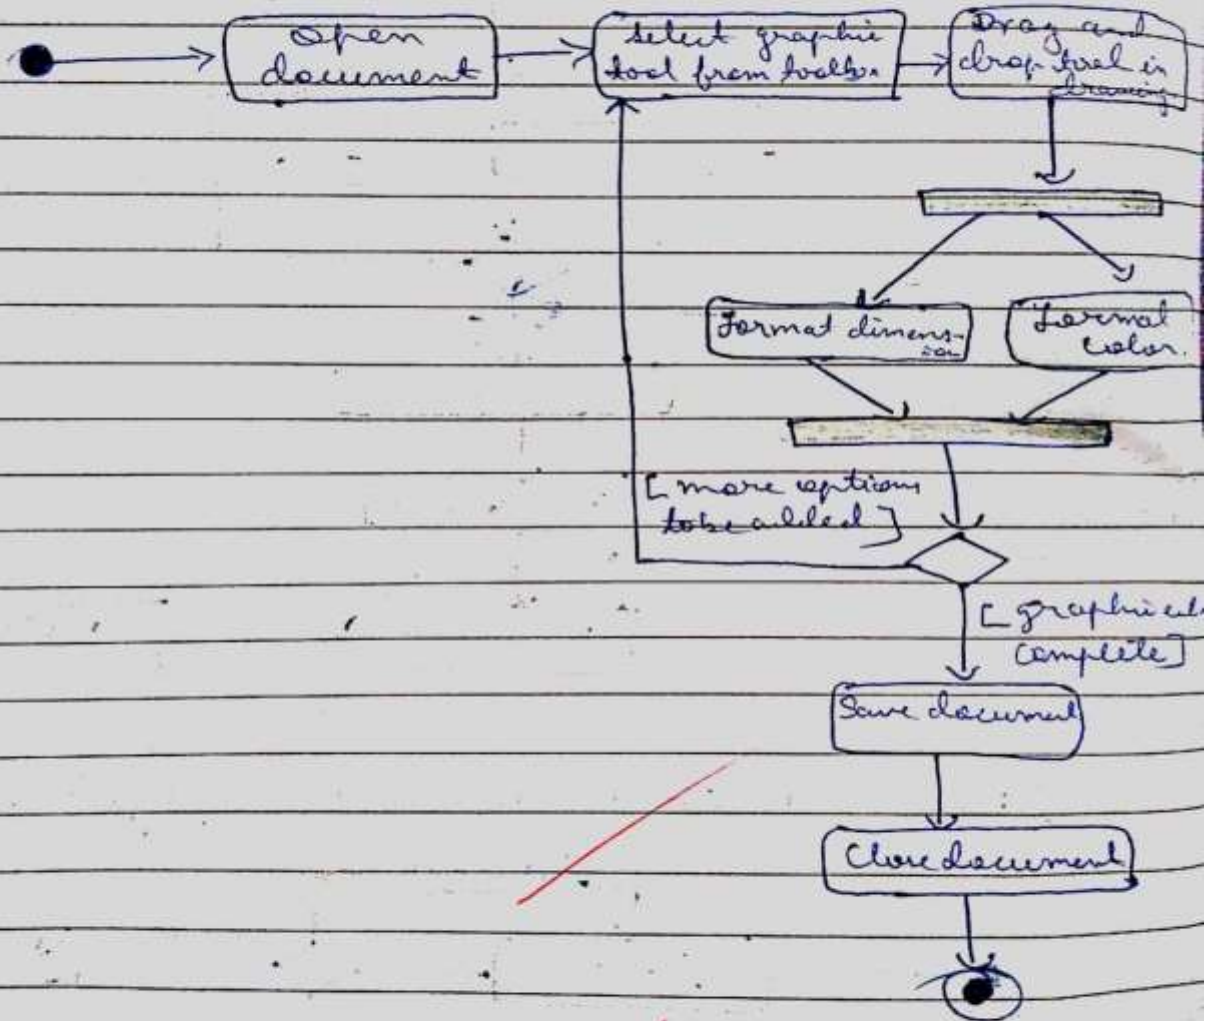 Open
document
Select graphic
tool from toolbox
Drag and
drop tool in
drawing
Format dimens-
ion
Format
color.
[ more options
to be added ]
[ graphical
complete ]
Save document
Close document